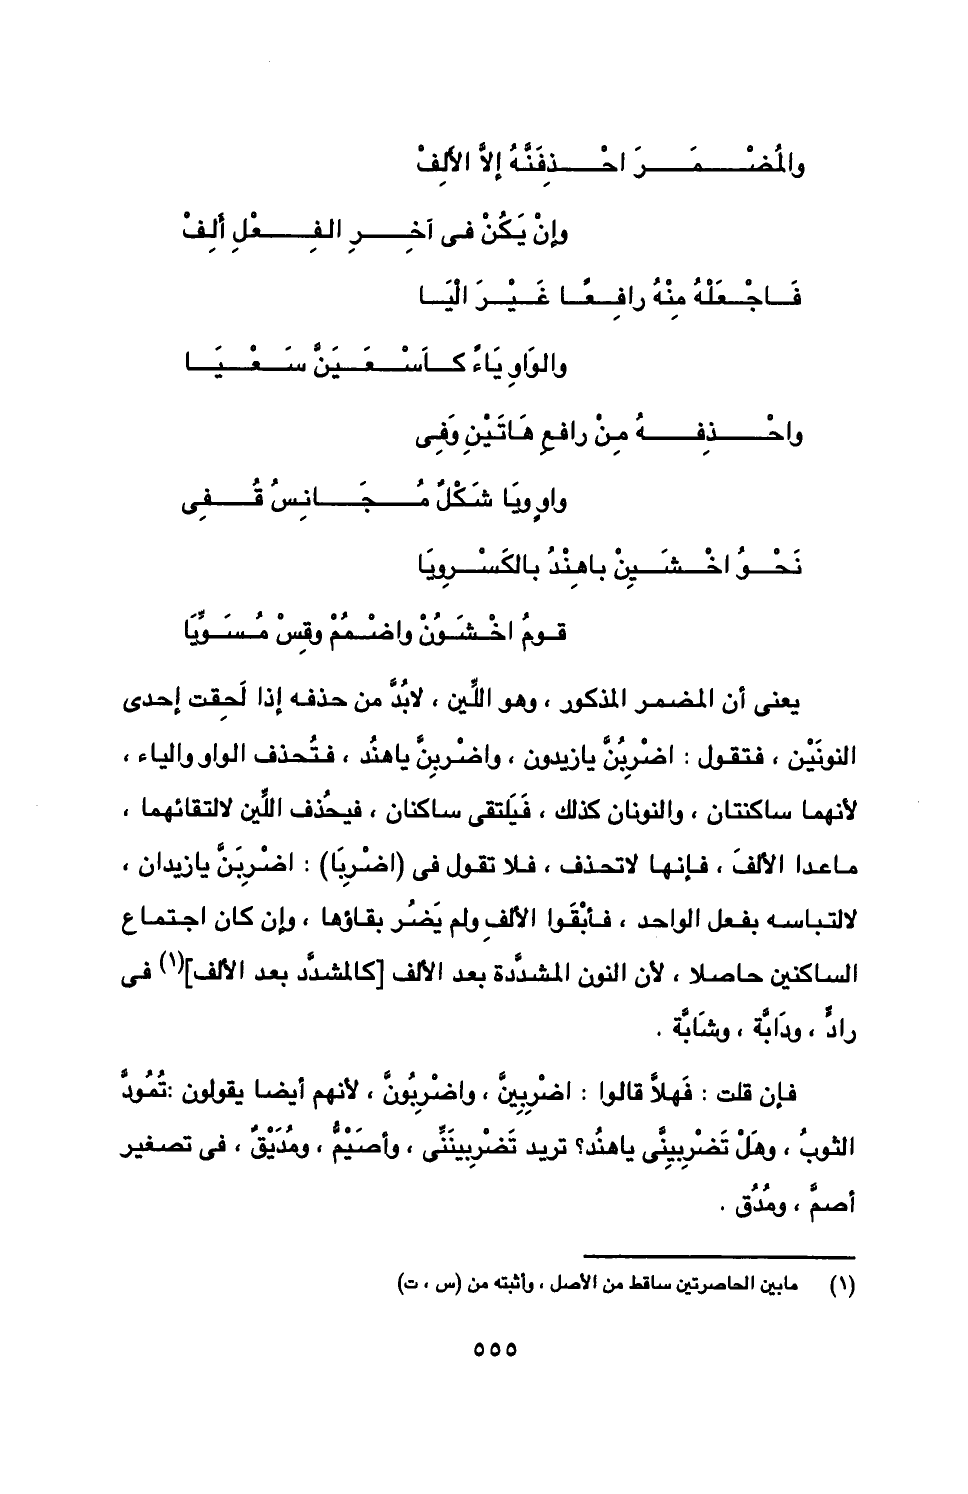 والمُضْمَرَ احْذِفَنَّهُ إلاَّ الألِفْ
وإنْ يَكُنْ فى آخِرِ الفِعْلِ ألِفْ
فَاجْعَلْهُ مِنْهُ رافِعًا غَيْرَ الْيَا
والوَاوِ يَاءً كَاسْعَيَنَّ سَعْيَا
واحْذِفْهُ مِنْ رافِعِ هَاتَيْنِ وَفِى
واوٍ ويَا شَكْلٌ مُجَانِسٌ قُفِى
نَحْوُ اخْشَيِنْ ياهِنْدُ بالكَسْرِ ويَا
قومُ اخْشَوُنْ واضْمُمْ وقِسْ مُسَوِّيَا
يعنى أن المضمر المذكور ، وهو اللِّين ، لابُدَّ من حذفه إذا لَحِقت إحدى
النونَيْن ، فتقول : اضْرِبُنَّ يازيدون ، واضْرِبِنَّ ياهندُ ، فتُحذف الواو والياء ،
لأنهما ساكنتان ، والنونان كذلك ، فَيَلتقى ساكنان ، فيحُذف اللِّين لالتقائهما ،
ماعدا الألفَ ، فإنها لاتحذف ، فلا تقول فى (اضْرِبَا) : اضْرِبَنَّ يازيدان ،
لالتباسه بفعل الواحد ، فأبْقَوا الألفِ ولم يَضُر بقاؤها ، وإن كان اجتماع
الساكنين حاصلا ، لأن النون المشدَّدة بعد الألف [كالمشدَّد بعد الألف](١) فى
رادٍّ ، ودَابَّة ، وشَابَّة .
فإن قلت : فَهلاَّ قالوا : اضْرِبِينَّ ، واضْرِبُونَّ ، لأنهم أيضا يقولون :تُمُودَّ
الثوبُ ، وهَلْ تَضْرِبِينِّى ياهندُ؟ تريد تَضْرِبِينَنِّى ، وأصَيْمُّ ، ومُدَيْقٌّ ، فى تصغير
أصمَّ ، ومُدُق .
(١) مابين الحاصرتين ساقط من الأصل ، وأثبته من (س ، ت)
٥٥٥